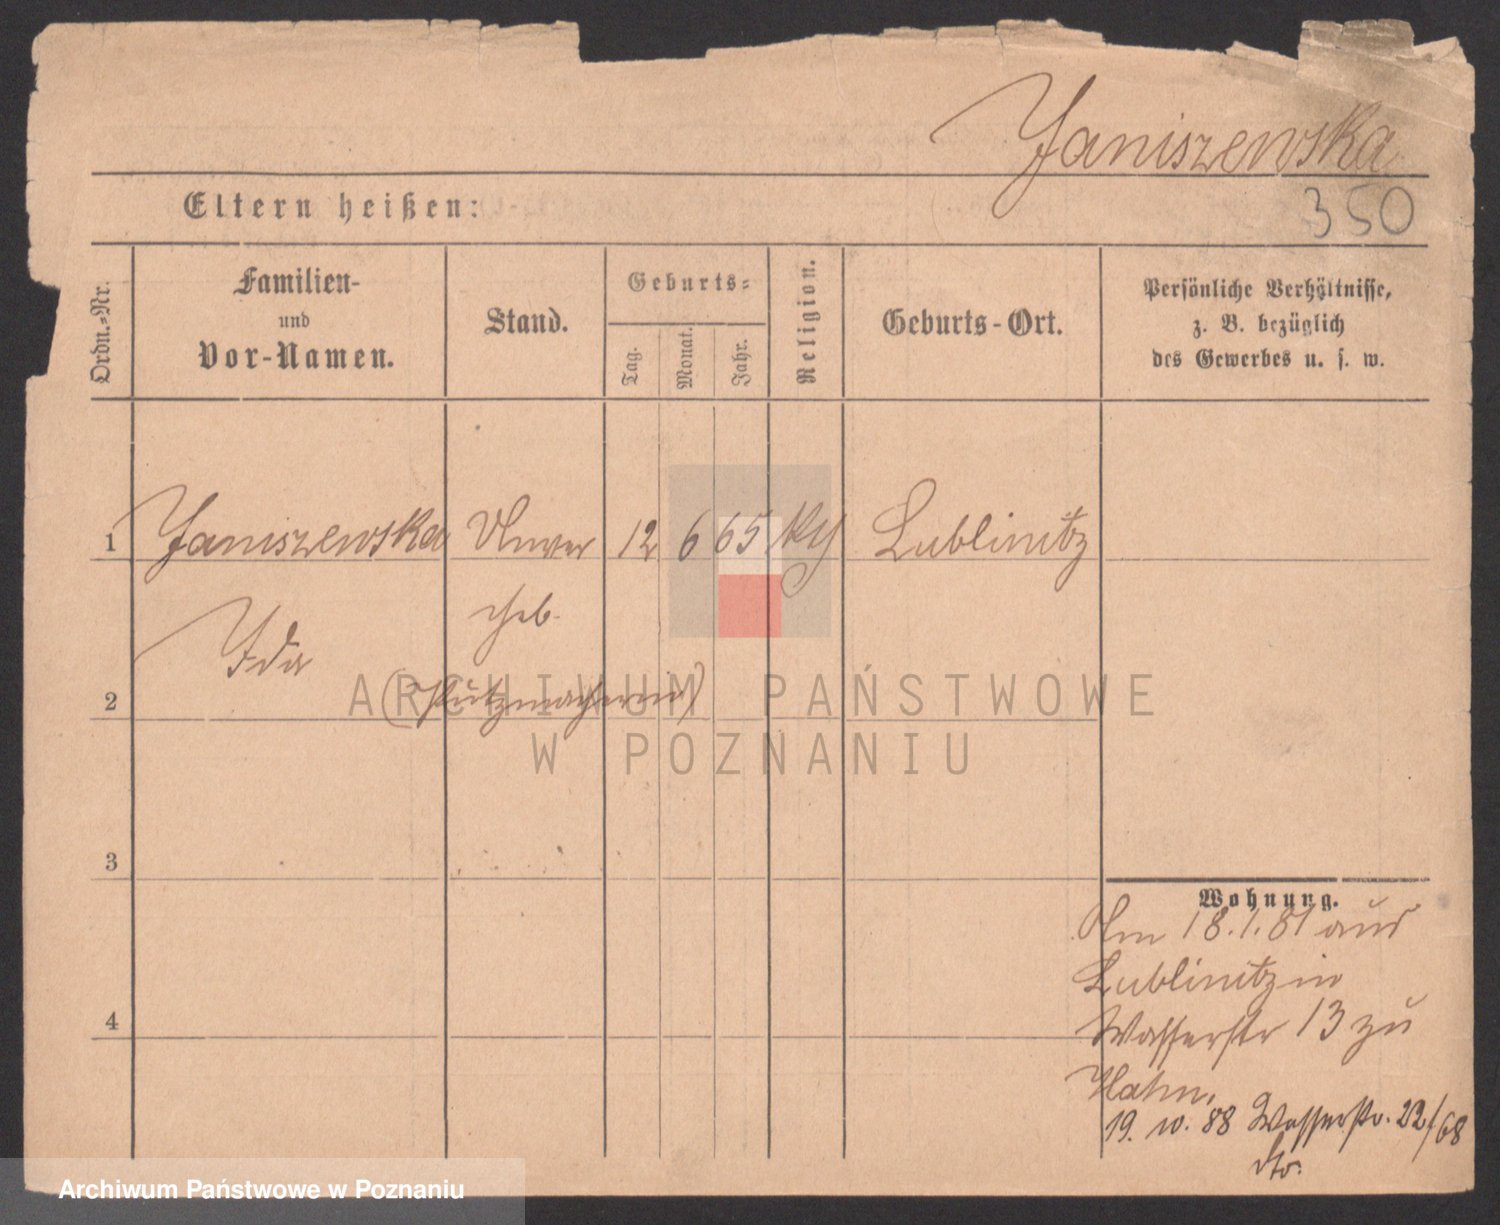 Janiszewska
350
Eltern heißen:
Ordn.-Nr.
Familien-
und
Vor-Namen.
Stand.
Geburts-
Tag.
Monat.
Jahr.
Religion.
Geburts-Ort.
Persönliche Verhältnisse,
z. B. bezüglich
des Gewerbes u. s. w.
1 Janiszewska Unver 12 6 65 Lublinitz
Ida ehel.
2 (Putzmacherin)
3
4
Wohnung.
Am 18.1.81 aus
Lublinitz in
Wasserstr 13 zu
Hahn.
19. 10. 88 Wasserstr. 22/68
dto.
ARCHIWUM PAŃSTWOWE
W POZNANIU
Archiwum Państwowe w Poznaniu